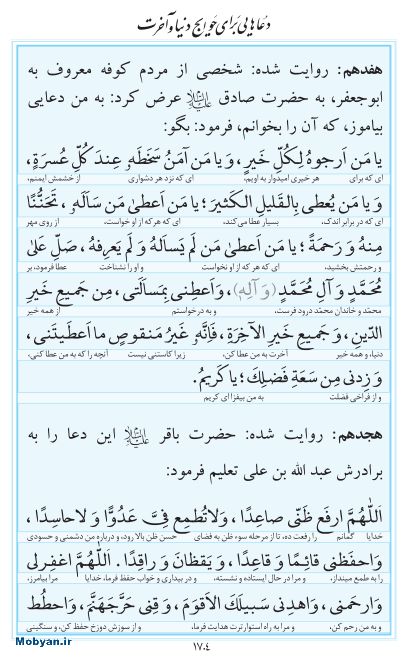 دعاهایی برای حوایج دنیا و آخرت
هفدهم: روایت شده: شخصی از مردم کوفه معروف به
ابوجعفر، به حضرت صادق علیه‌السلام عرض کرد: به من دعایی
بیاموز، که آن را بخوانم، فرمود: بگو:
یا مَن اَرجوهُ لِکُلِّ خَیرٍ، وَ یا مَن آمَنُ سَخَطَهُ عِندَ کُلِّ عُسرَةٍ،
ای که برای هر خیری امیدوار به اویم، ای که نزد هر دشواری از خشمش ایمنم،
وَ یا مَن یُعطی بِالقَلیلِ الکَثیرَ؛ یا مَن اَعطیٰ مَن سَاَلَهُ، تَحَنُّنًا
ای که در برابر اندک، بسیار عطا می‌کند، ای که هر که از او خواست، از روی مهر
مِنهُ وَ رَحمَةً؛ یا مَن اَعطیٰ مَن لَم یَسألهُ وَ لَم یَعرِفهُ، صَلِّ عَلیٰ
و رحمتش بخشید، ای که هر که از او نخواست و او را نشناخت عطا فرمود، بر
مُحَمَّدٍ وَ آلِ مُحَمَّدٍ (وَ آلِهِ)، وَ اَعطِنی بِمَسأَلَتی، مِن جَمیعِ خَیرِ
محمّد و خاندان محمّد درود فرست، و به درخواستم از همه خیر
الدّینِ، وَ جَمیعِ خَیرِ الآخِرَةِ، فَاِنَّهُ غَیرُ مَنقوصٍ ما اَعطَیتَنی،
دنیا، و همه خیر آخرت به من عطا کن، زیرا کاستنی نیست آنچه را که به من عطا کنی،
وَ زِدنی مِن سَعَةِ فَضلِکَ؛ یا کَریمُ.
و از فراخی فضلت به من بیفزا ای کریم
هجدهم: روایت شده: حضرت باقر علیه‌السلام این دعا را به
برادرش عبد الله بن علی تعلیم فرمود:
اَللّٰهُمَّ ارفَع ظَنّی صاعِدًا، وَ لاتُطمِع فِیَّ عَدُوًّا وَ لاحاسِدًا،
خدایا گمانم را رفعت ده، تا از مرحله سوء ظن به فضای حسن ظن بالا رود، و درباره من دشمنی و حسودی
وَ احفَظنی قائِمًا وَ قاعِدًا، وَ یَقظانَ وَ راقِدًا. اَللّٰهُمَّ اغفِرلی
را به طمع مینداز، و مرا در حال ایستاده و نشسته، و در بیداری و خواب حفظ فرما، خدایا مرا بیامرز،
وَ ارحَمنی، وَ اهدِنی سَبیلَکَ الاَقوَمَ، وَ قِنی حَرَّ جَهَنَّمَ، وَ احطُط
و به من رحم کن، و مرا به راه استوارترت هدایت فرما، و از سوزش دوزخ حفظ کن، و سنگینی
۱۷۰۴
Mobyan.ir